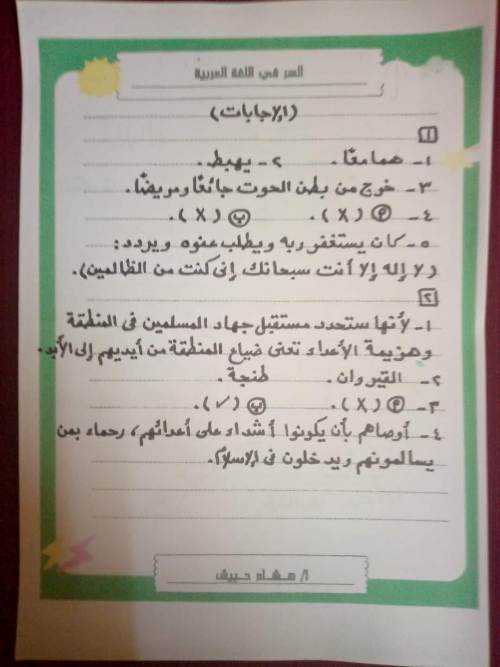 السر في اللغة العربية
(الإجابات)
١
١- هما معًا. ٢- يهبط.
٣- خرج من بطن الحوت جائعًا ومريضًا.
٤- م (X). ب (X).
٥- كان يستغفر ربه ويطلب عفوه ويردد:
(لا إله إلا أنت سبحانك إنى كنت من الظالمين).
٢
١- لأنها ستحدد مستقبل جهاد المسلمين فى المنطقة
وهزيمة الأعداء تعنى ضياع المنطقة من أيديهم إلى الأبد.
٢- القيروان. طنجة.
٣- م (X). ب (✓).
٤- أوصاهم بأن يكونوا أشداء على أعدائهم، رحماء بمن
يسالمونهم ويدخلون فى الإسلام.
أ/ هشام حبيش